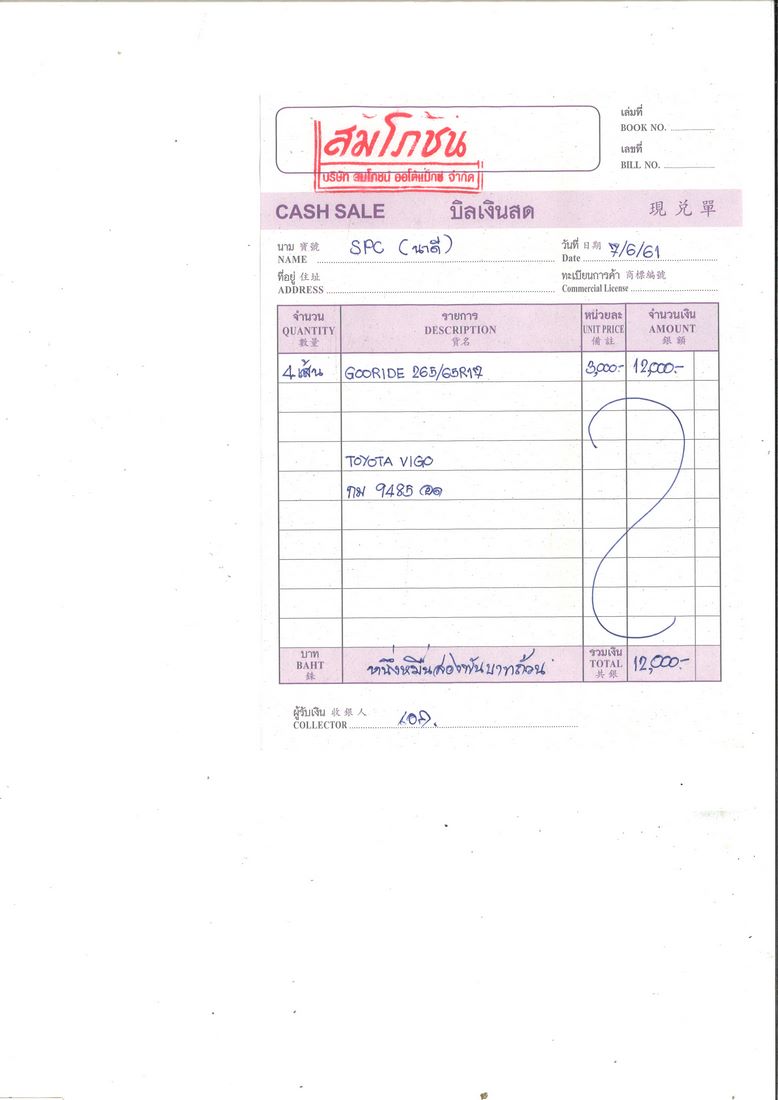 สัมโภชน์
บริษัท สัมโภชน์ ออโต้แม็กซ์ จำกัด
เล่มที่
BOOK NO.
เลขที่
BILL NO.
CASH SALE บิลเงินสด 現兌單
นาม 寶號 NAME SPC (นาดี) วันที่ 日期 Date 7/6/61
ที่อยู่ 住址 ADDRESS ทะเบียนการค้า 商標編號 Commercial License
จำนวน รายการ หน่วยละ จำนวนเงิน
QUANTITY DESCRIPTION UNIT PRICE AMOUNT
數量 貨名 備註 銀額
4 เส้น GOORIDE 265/65R17 3,000.- 12,000.-
TOYOTA VIGO
กม 9485
บาท รวมเงิน
BAHT หนึ่งหมื่นสองพันบาทถ้วน TOTAL 12,000.-
銖 共銀
ผู้รับเงิน 收銀人
COLLECTOR